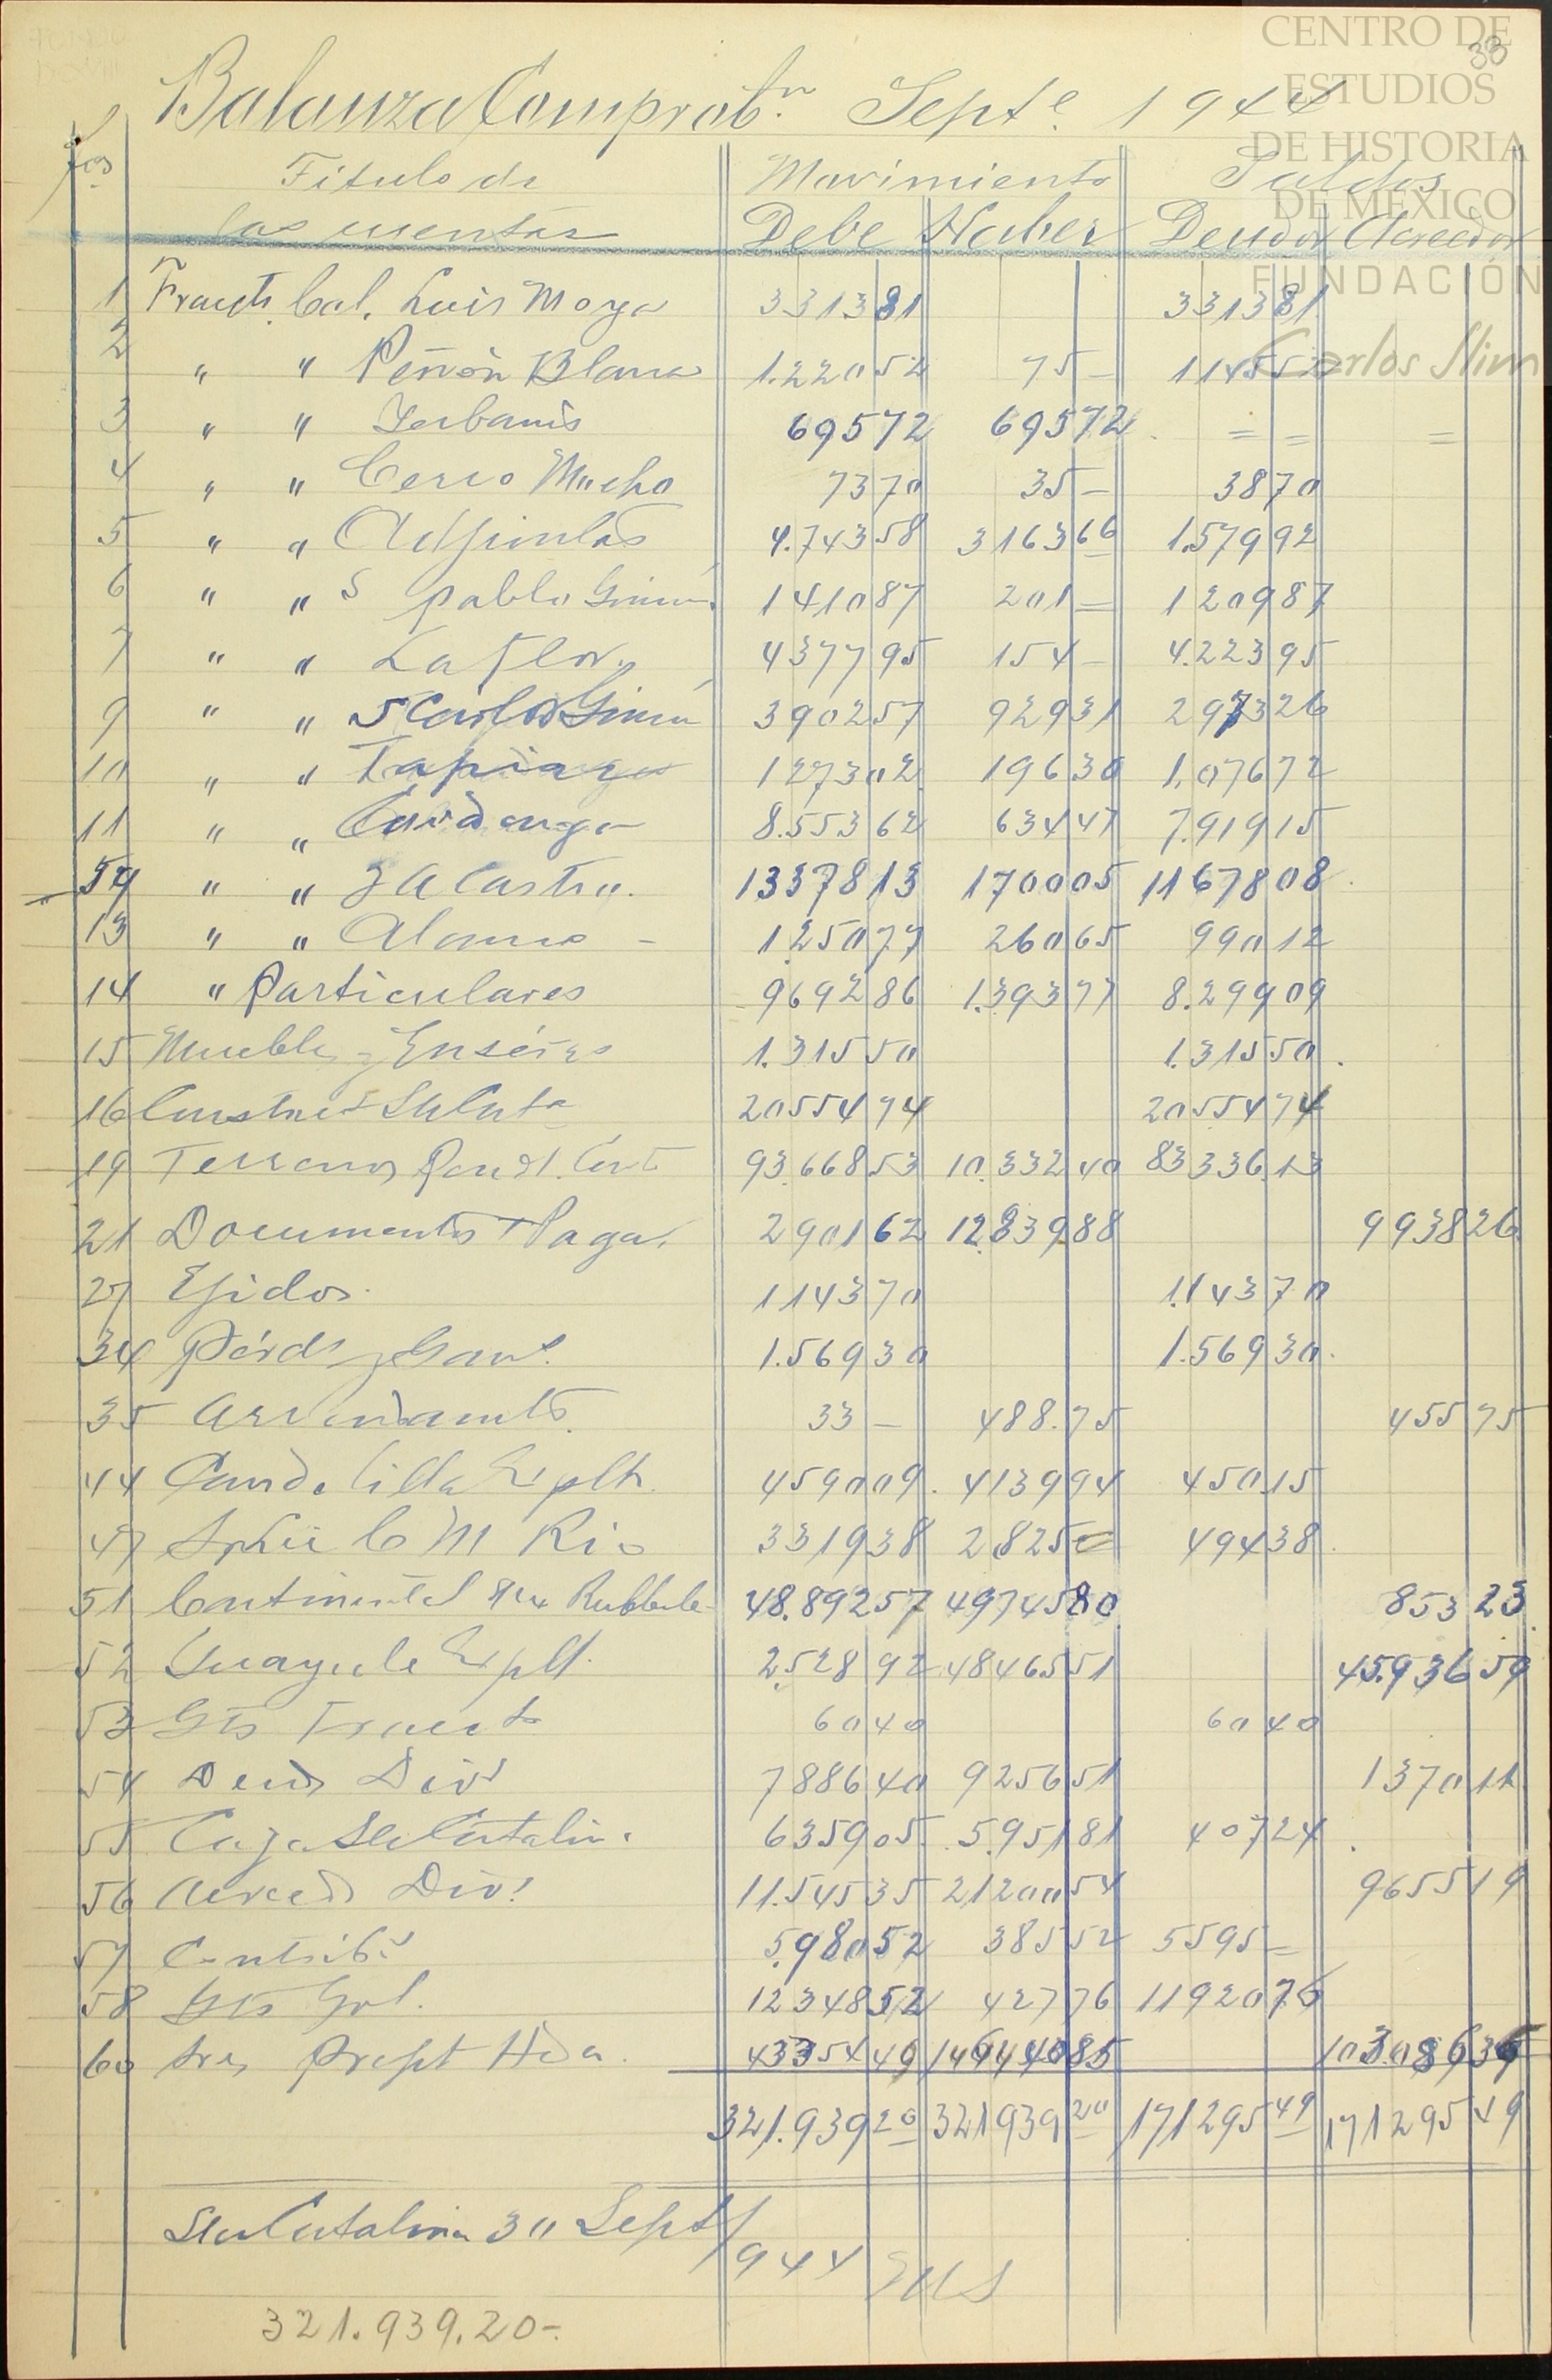 CENTRO DE
ESTUDIOS
DE HISTORIA
DE MÉXICO
FUNDACIÓN
Carlos Slim
33
Balanza Comprobn. Septe. 1944
fos Titulo de Movimiento Saldos
las cuentas Debe Haber Deudor Acreedor
1 Fraccts. Col. Luis Moya 3313 81 3313 81
2 " " Peñón Blanco 1.220 52 75 — 1145 52
3 " " Yerbanis 695 72 695 72 = = =
4 " " Cerro Mocho 73 70 35 — 38 70
5 " " Adjuntas 4.743 58 3163 66 1.579 92
6 " " S pablo 1410 87 201 — 1209 87
7 " " La Flor 4377 95 154 — 4.223 95
9 " " S Carlos 3902 57 929 31 2973 26
10 " " 1273 02 196 30 1,076 72
11 " " 8.553 62 634 47 7.919 15
59 " " Castro. 13378 13 1700 05 11678 08
13 " " Alamo — 1250 77 260 65 990 12
14 " Particulares 9692 86 1.393 77 8.299 09
15 Muebles y Enseres 1.315 50 1.315 50
16 20554 74 20554 74
19 Terrenos 93.668 53 10.332 40 83336.13
21 Documentos Pagar. 2901 62 12839 88 9938 26
27 Ejidos. 1143 70 1.143 70
34 Pérds y Gans. 1.569 30 1.569 30
35 Arrendamts. 33 — 488.75 455 75
44 Candelilla Explt. 4590 09 4139 94 450.15
47 C M Rio 3319 38 2825 = 494 38
51 Continental Mex Rubber 48.892 57 49745 80 853 23
52 Guayule Explt. 2.528 92 48465 51 45.936 59
53 Gts Fracct 60 40 60 40
54 Deuds Divs 7886 40 9256 51 1370 11
55 Caja Sta Catalina 6359 05 5.951 81 407 24
56 Acreeds Divs 11.545 35 21200 54 9655 19
57 Contribs 5.980 52 385 52 5595 —
58 Gts Grl. 12348 52 427 76 11920 76
60 Sres Propt Hda. 43354 49 146440 85 103.086 36
321.939 20 321939 20 171295 49 171295 49
Sta Catalina 30 Sept/
944
321.939.20-.